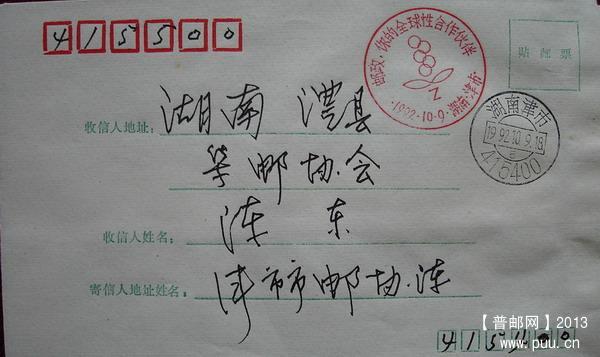 415500
邮政·你的全球性合作伙伴
·1992·10·9·湖南·津市
贴邮票
湖南津市
1992.10.9.18
415400
收信人地址:湖南 澧县
邮协会
收信人姓名:涂 东
寄信人地址姓名:津市市邮协.涂
415400
【普邮网】2013
www.puu.cn